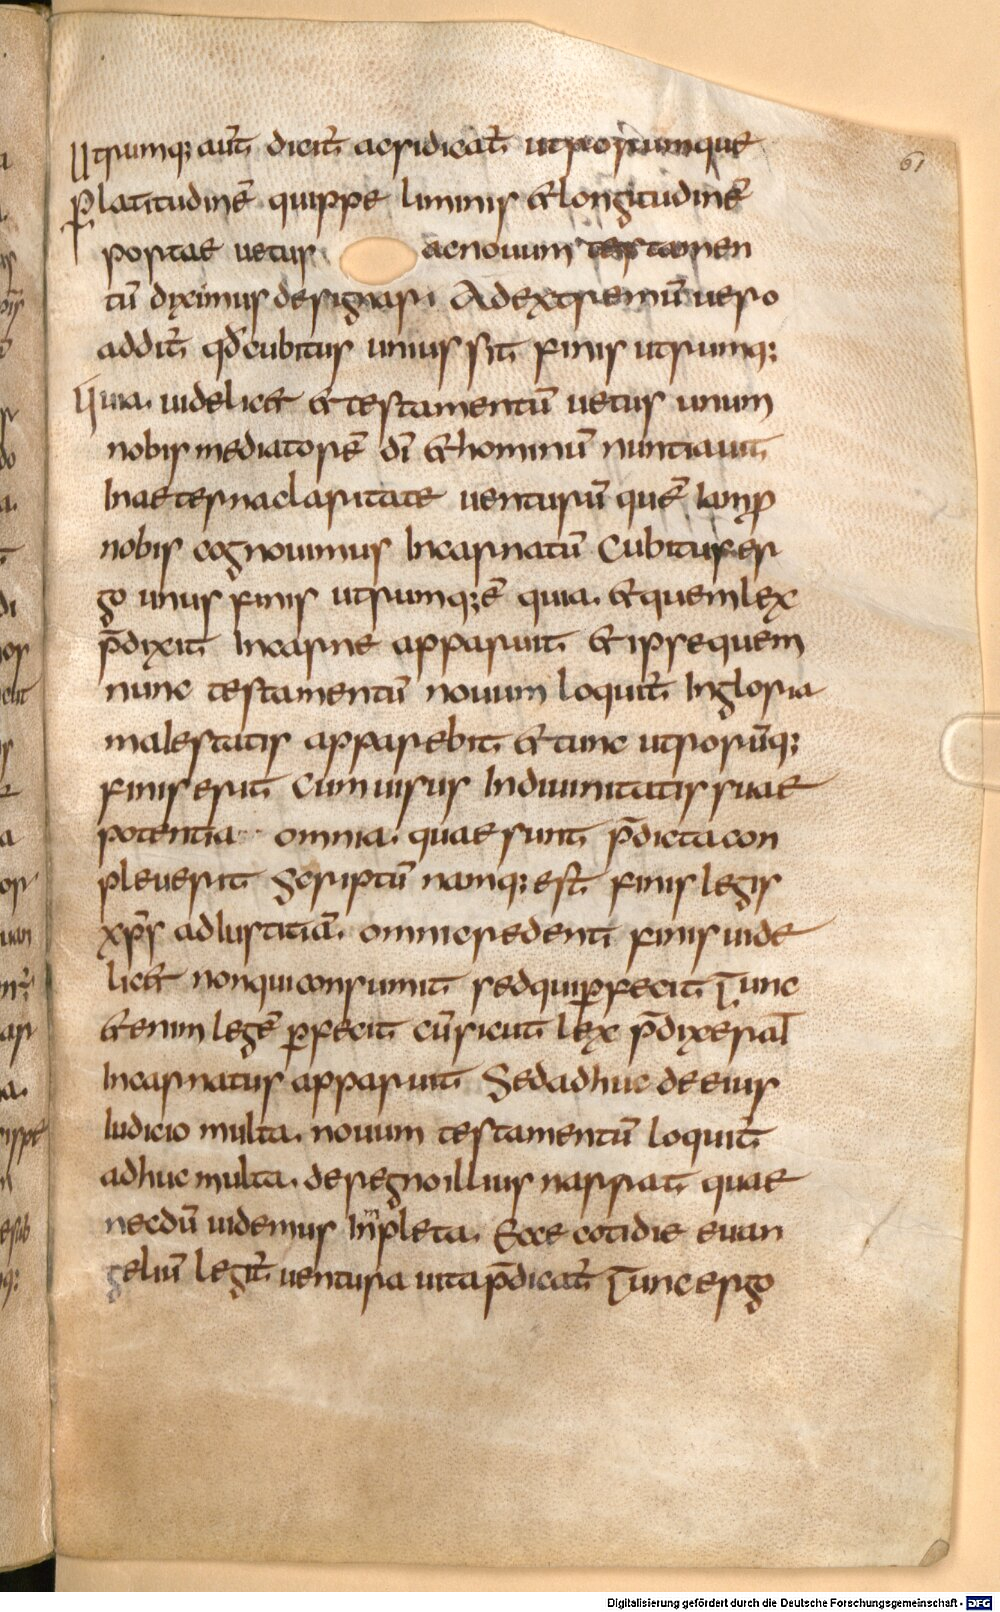 61
Utrumq; aut̄ dicit̄ acsidicat̄ utrorumque
Platitudinē quippe liminis &longitudinē
portae uetus acnouum testamen
tū diximus designari Adextremū uero
addit̄ qd̄cubitus unius sit finis utrumq;
Quia uidelic& &testamentū uetus unum
nobis mediatorē dī &hominū nuntiauit
Inaeternaclaritate uenturū quē
nobis cognouimus Incarnatū Cubitus er
go unus finis utrumq;ē quia &quemlex
p̄dixit Incarne apparuit &ipsequem
nunc testamentū nouum loquit̄ Ingloria
maiestatis apparebit &tunc utrorūq;
finiserit Cumuisus Indiuinitatis suae
potentia omnia quaesunt p̄dictacon
pleuerit Scriptū namq;est̄ finis legis
xp̄s adIustitiā omnicredenti finisuide
lic& nonquiconsumit sedquiꝑfecit Tunc
&enim legē ꝑfecit cūsicut lex p̄dixerat
Incarnatus apparuit Sedadhuc deeius
Iudicio multa nouum testamentū loquit̄
adhucmulta deregnoillius narrat quae
necdū uidemus Inmpleta Ecce cotidie euan
geliū legit̄ uentura uitap̄dicat̄ Tuncergo
Digitalisierung gefördert durch die Deutsche Forschungsgemeinschaft - DFG